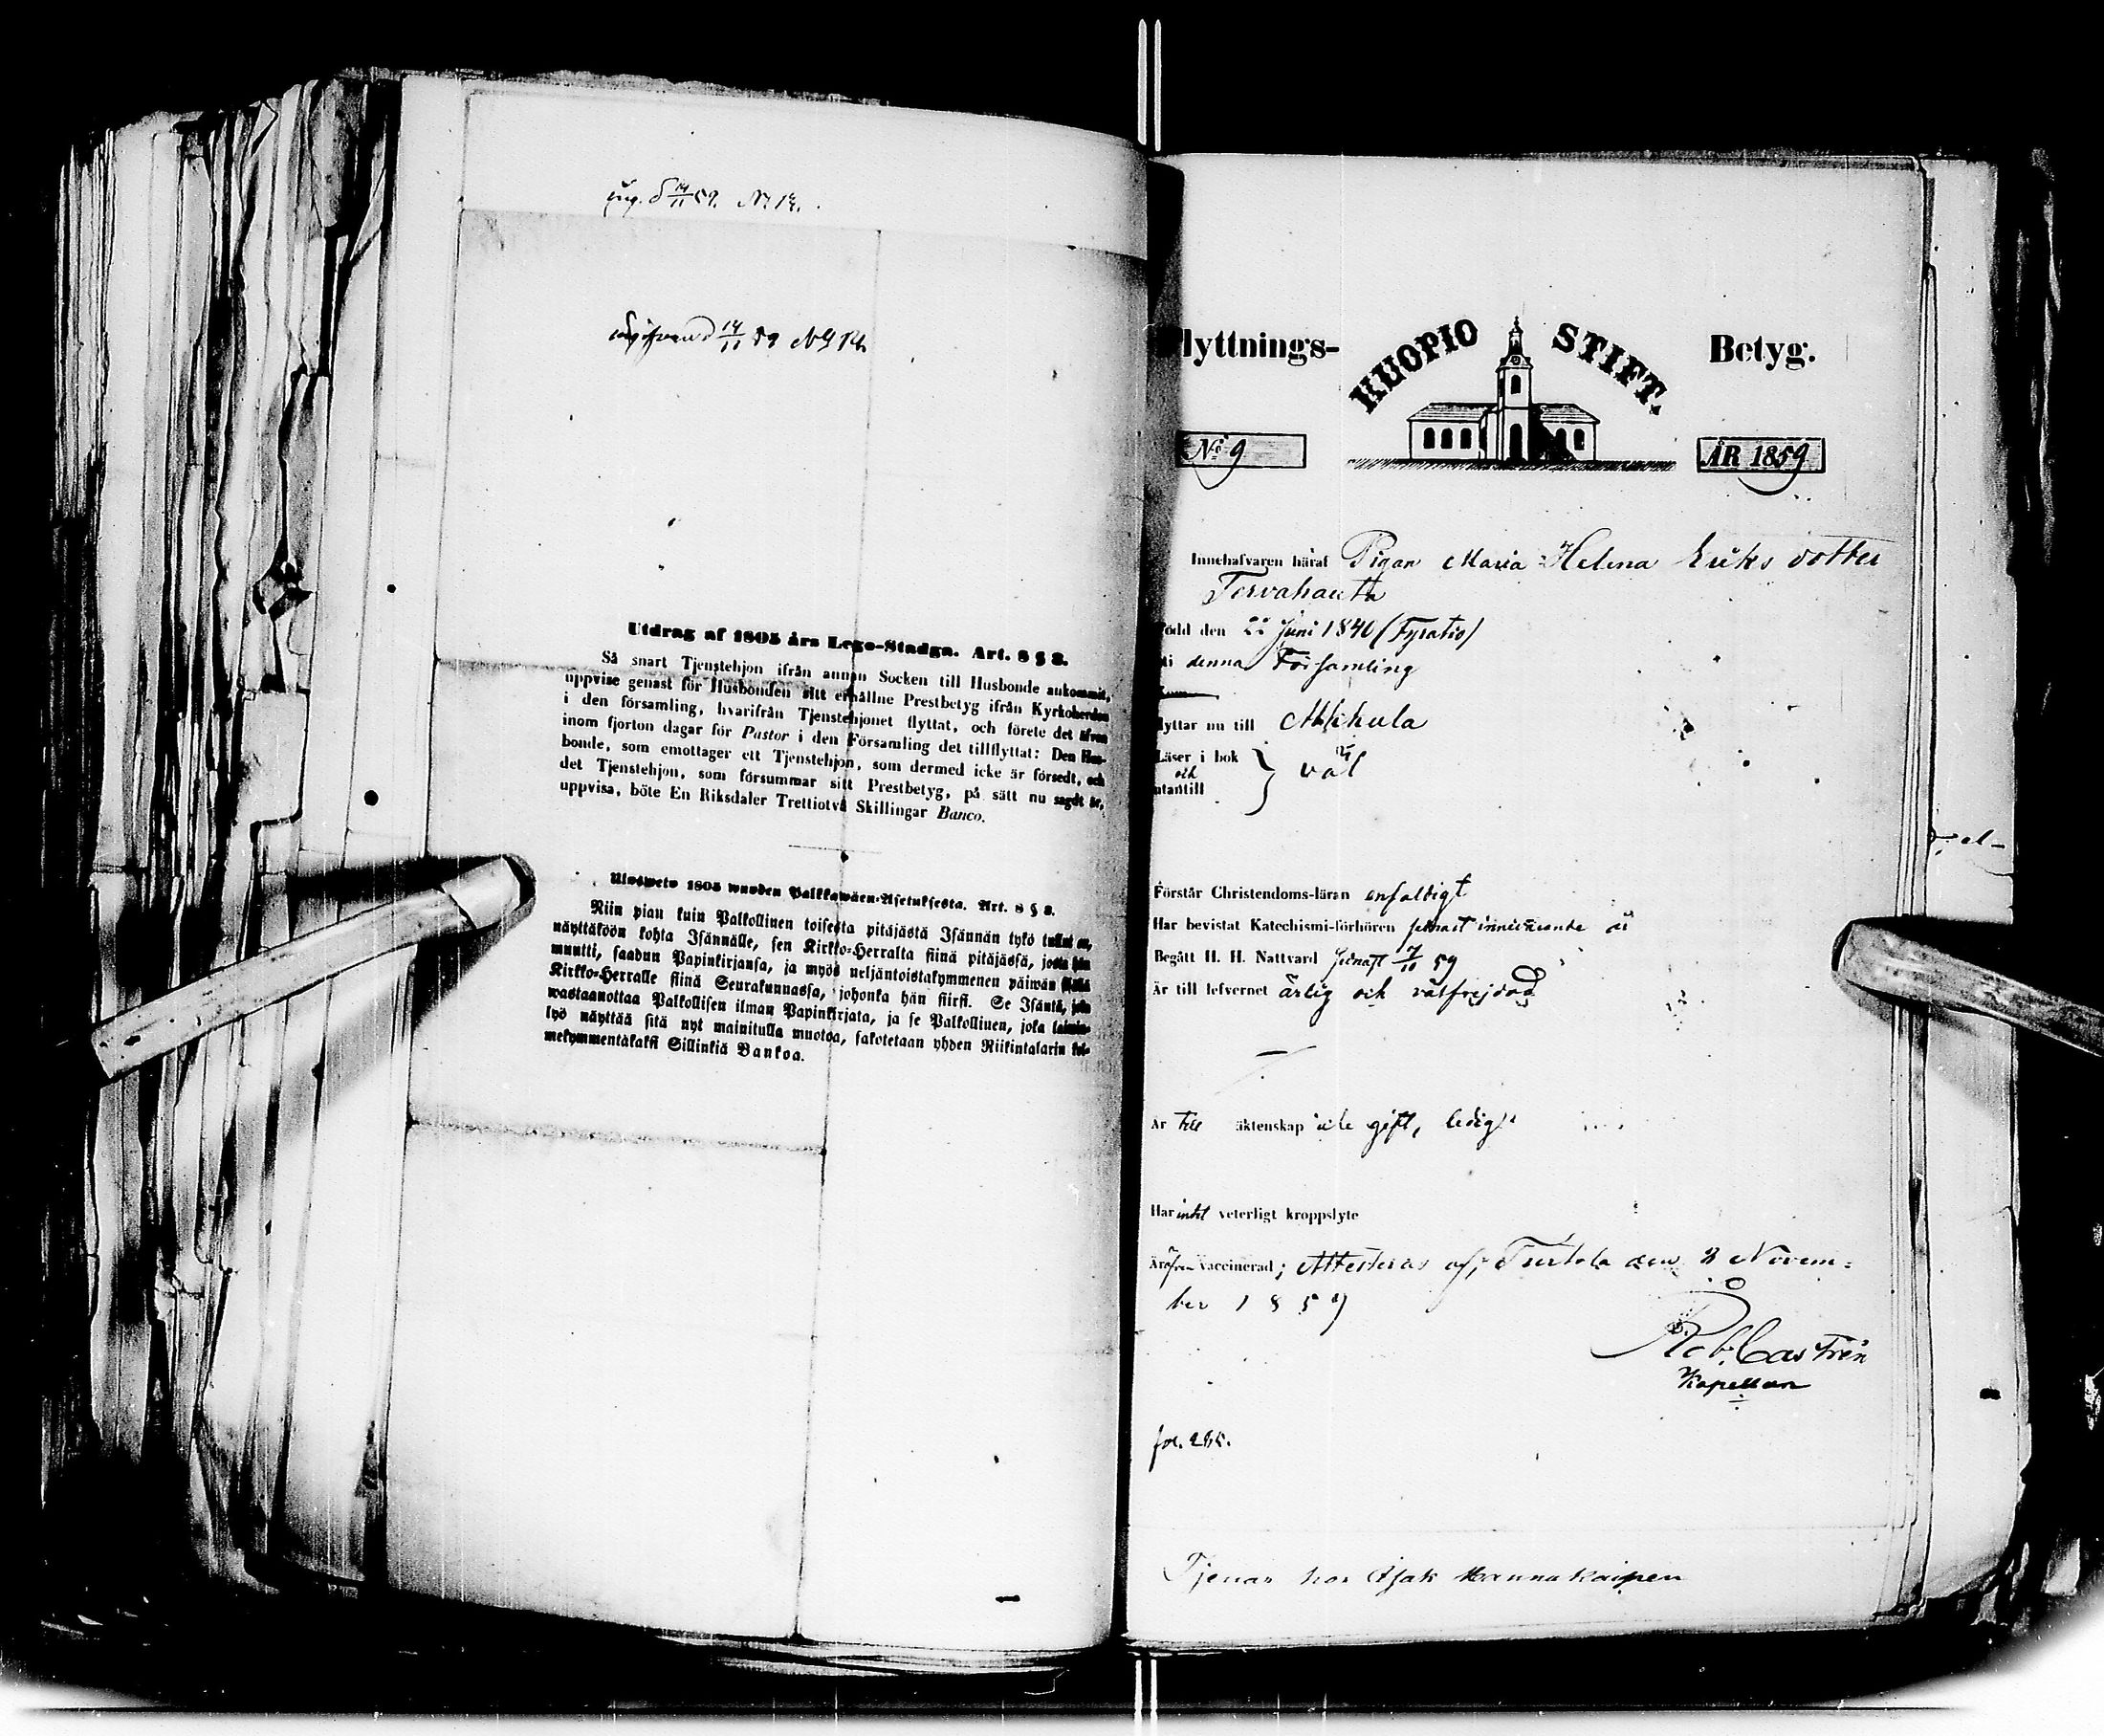 ing. d 14/11 59. No 14.
14/11 59 No 14.
Utdrag af 1805 års Lego-Stadga. Art. 8 § 8.
Så snart Tjenstehjon ifrån annan Socken till Husbonde ankommit,
uppvise genast för Husbonden sitt erhållne Prestbetyg ifrån Kyrkoherden
i den församling, hvarifrån Tjenstehjonet flyttat, och förete det äfven
inom fjorton dagar för Pastor i den Församling det tillflyttat: Den Hus-
bonde, som emottager ett Tjenstehjon, som dermed icke är försedt, och
det Tjenstehjon, som försummar sitt Prestbetyg, på sätt nu sagdt är,
uppvisa, böte En Riksdaler Trettiotvå Skillingar Banco.
Ulosweto 1805 wuoden Palkkawäen-Asetuksesta. Art. 8 § 8.
Niin pian kuin Palkollinen toisesta pitäjästä Isännän tykö tullut on,
näyttäköön kohta Isännälle, sen Kirkko-Herralta siinä pitäjässä, josta hän
muutti, saadun Papinkirjansa, ja myös neljäntoistakymmenen päiwän sisällä
Kirkko-Herralle siinä Seurakunnassa, johonka hän siirsi. Se Isäntä, joka
wastaanottaa Palkollisen ilman Papinkirjata, ja se Palkollinen, joka laimin-
lyö näyttää sitä nyt mainitulla muotoa, sakotetaan yhden Riikintalarin kol-
mekymmentäkaksi Sillinkiä Bankoa.
lyttnings- KUOPIO STIFT. Betyg.
No 9 ÅR 1859
Innehafvaren häraf Pigan Maria Helena Eriks dotter
Tervahauta
ödd den 22 Juni 1840 (Fyratio)
i denna Församling
lyttar nu till Alkkula
Läser i bok
och
utantill } väl
Förstår Christendoms-läran enfaldigt
Har bevistat Katechismi-förhören senast innevarande år
Begått H. H. Nattvard senast 7/11 59
Är till lefvernet ärlig och välfrejdad
Är till äktenskap icke gift, ledig.
Har intet veterligt kroppslyte
Är äfven vaccinerad; Attesteras af; Turtola den 8 Novem-
ber 1859
Rob. Castrén
Kapellan
fol. 285.
Tjenar hos Isak Kannukaipen